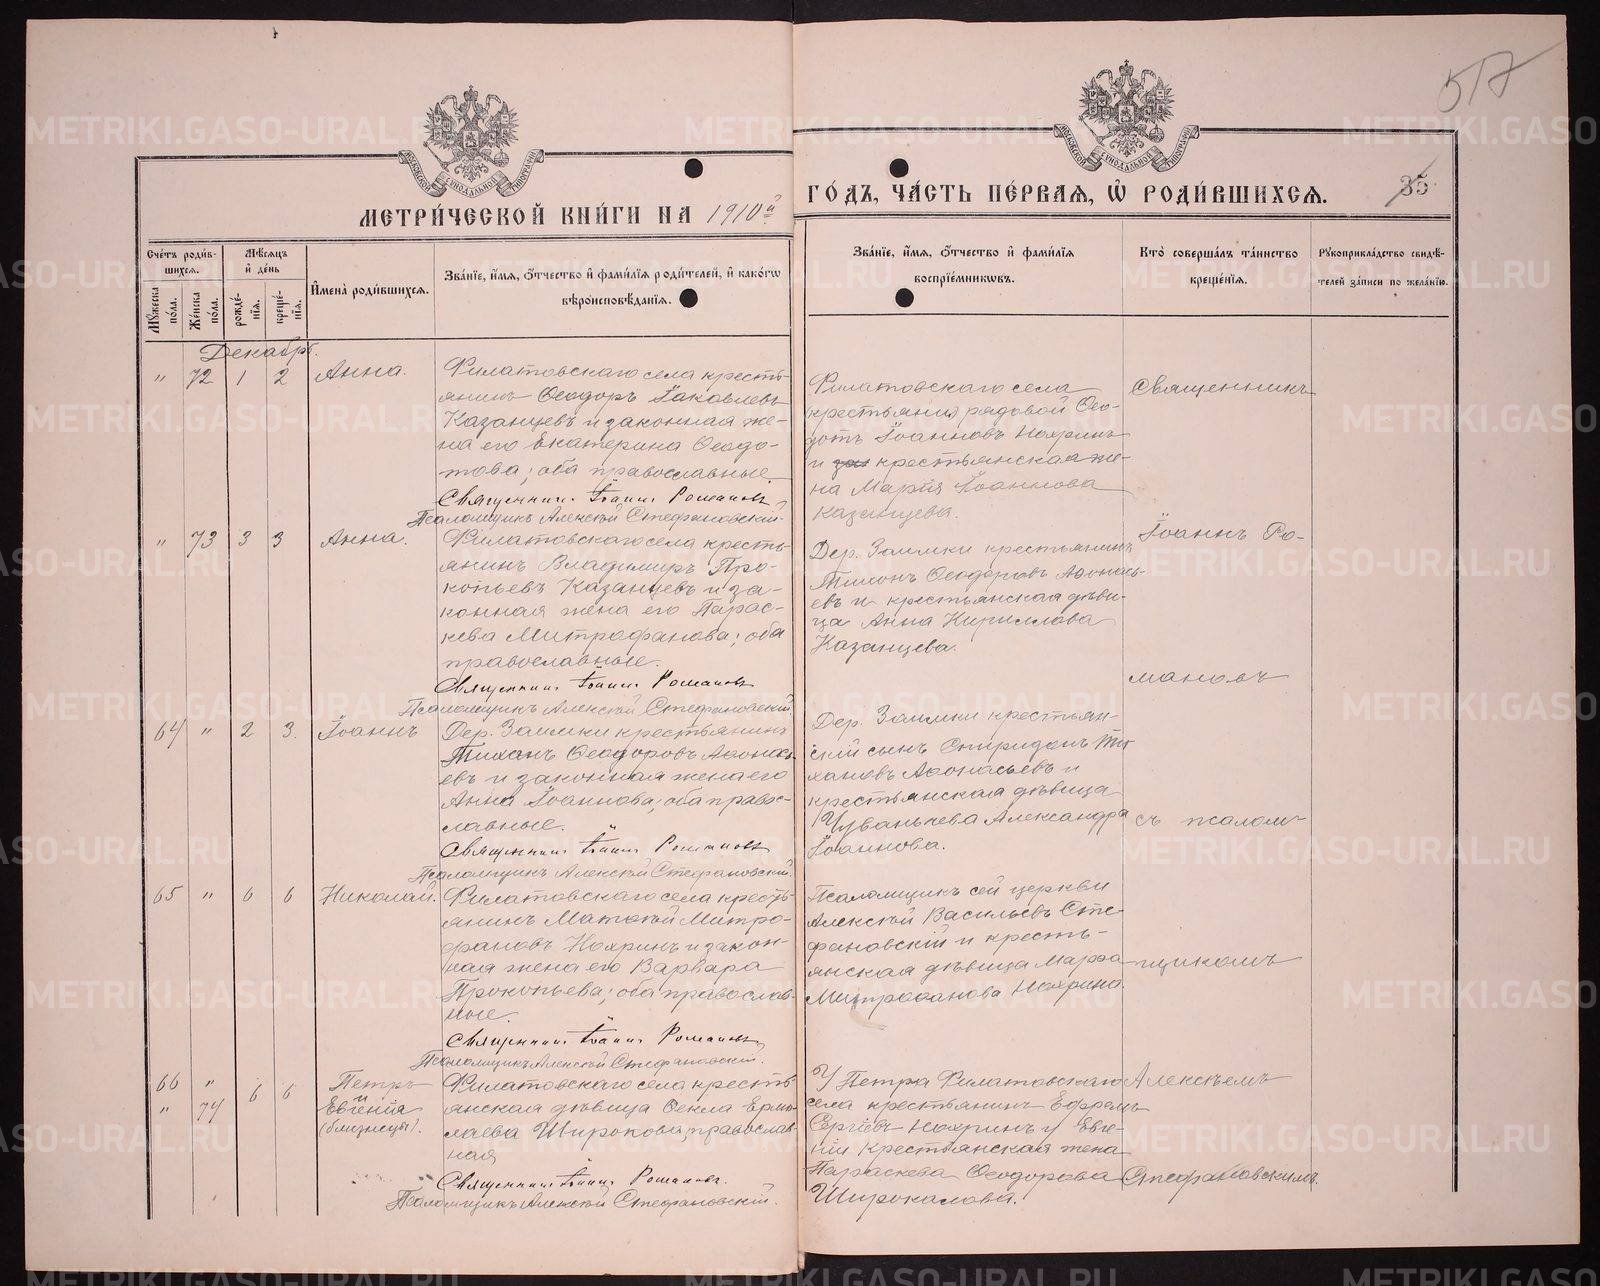 517
МОСКОВСКОЙ СѴНОДАЛЬНОЙ ТИПОГРАФІИ
МОСКОВСКОЙ СѴНОДАЛЬНОЙ ТИПОГРАФІИ
МЕТРИ́ЧЕСКОЙ КНИ́ГИ НА 1910й
ГО́ДЪ, ЧА́СТЬ ПЕ́РВАЯ, Ѡ РОДИ́ВШИХСЯ.
35
Сче́тъ роди́вшихся.
Му́жеска по́ла.
Же́нска по́ла.
Мѣ́сяцъ и҆ де́нь
рожде́нїя.
креще́нїя.
И҆мена̀ роди́вшихся.
Зва́нїе, и҆́мя, ѻ҆́тчество и҆ фами́лїя роди́телей, и҆ како́гѡ
вѣроисповѣ́данїя.
Зва́нїе, и҆́мя, ѻ҆́тчество и҆ фами́лїя
воспрїе́мникѡвъ.
Кто̀ соверша́лъ та́инство
креще́нїя.
Рꙋкоприкла́дство свидѣ́-
телей за́писи по жела́нїю.
Декабрь.
„ 72 1 2
Анна.
Филатовскаго села кресть-
янинъ Ѳеодоръ Іаковлевъ
Казанцевъ и законная же-
на его Екатерина Ѳеодо-
това; оба православные.
Священникъ Іоаннъ Романовъ
Псаломщикъ Алексѣй Стефановскій.
Филатовскаго села
(крестьянин) рядовой Ѳео-
дотъ Іоанновъ Нохринъ
и зак крестьянская же-
на Марія Іоаннова
Казанцева.
Священникъ
„ 73 3 3
Анна.
Филатовскаго села кресть-
янинъ Владимиръ Про-
копьевъ Казанцевъ и за-
конная жена его Парас-
кева Митрофанова; оба
православные.
Священникъ Іоаннъ Романовъ
Псаломщикъ Алексѣй Стефановскій.
Дер. Заимки крестьянинъ
Тихонъ Ѳеодоровъ Аѳонась-
евъ и крестьянская дѣви-
ца Анна Кириллова
Казанцева.
Іоаннъ Ро-
64 „ 2 3.
Іоаннъ
Дер. Заимки крестьянинъ
Тихонъ Ѳеодоровъ Аѳонась-
евъ и законная жена его
Анна Іоаннова; оба право-
славные.
Священникъ Іоаннъ Романовъ
Псаломщикъ Алексѣй Стефановскій.
Дер. Заимки крестьян-
скій сынъ Спиридонъ Ти-
хановъ Аѳонасьевъ и
крестьянская дѣвица
Чуваычева Александра
Іоаннова.
мановъ
съ псалом-
65 „ 6 6
Николай.
Филатовскаго села кресть-
янинъ Матѳей Митро-
фановъ Нохринъ и закон-
ная жена его Варвара
Прокопьева; оба православ-
ные.
Священникъ Іоаннъ Романовъ
Псаломщикъ Алексѣй Стефановскій.
Псаломщикъ сей церкви
Алексѣй Васильевъ Сте-
фановскій и кресть-
янская дѣвица Марѳа
Митрофанова Нохрина.
щикомъ
66 „
„ 74
6 6
Петръ
и
Евгенія
(близнецы).
Филатовскаго села кресть-
янская дѣвица Ѳекла Ермо-
лаева Широкова, православ-
ная
Священникъ Іоаннъ Романовъ.
Псаломщикъ Алексѣй Стефановскій.
У Петра Филатовскаго
села крестьянинъ Ефремъ
Сергіевъ Нохринъ у Евге-
ніи крестьянская жена
Параскева Ѳеодорова
Широкалова.
Алексѣемъ
Стефановскимъ.
METRIKI.GASO-URAL.RU